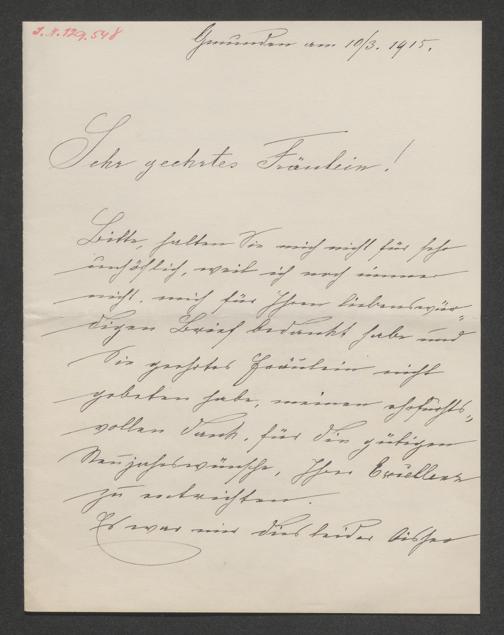 I.N. 129.548
Gmunden am 10/3. 1915.
Sehr geehrtes Fräulein!
Bitte, halten Sie mich nicht für sehr
unhöflich, weil ich noch immer
nicht mich für Ihren liebenswür-
digen Brief bedankt habe und
Sie geehrtes Fräulein nicht
gebeten habe, meinen ehrfurchts-
vollen Dank, für die gütigen
Neujahrswünsche, Ihrer Exzellenz
zu entrichten.
Es war mir dies leider bisher